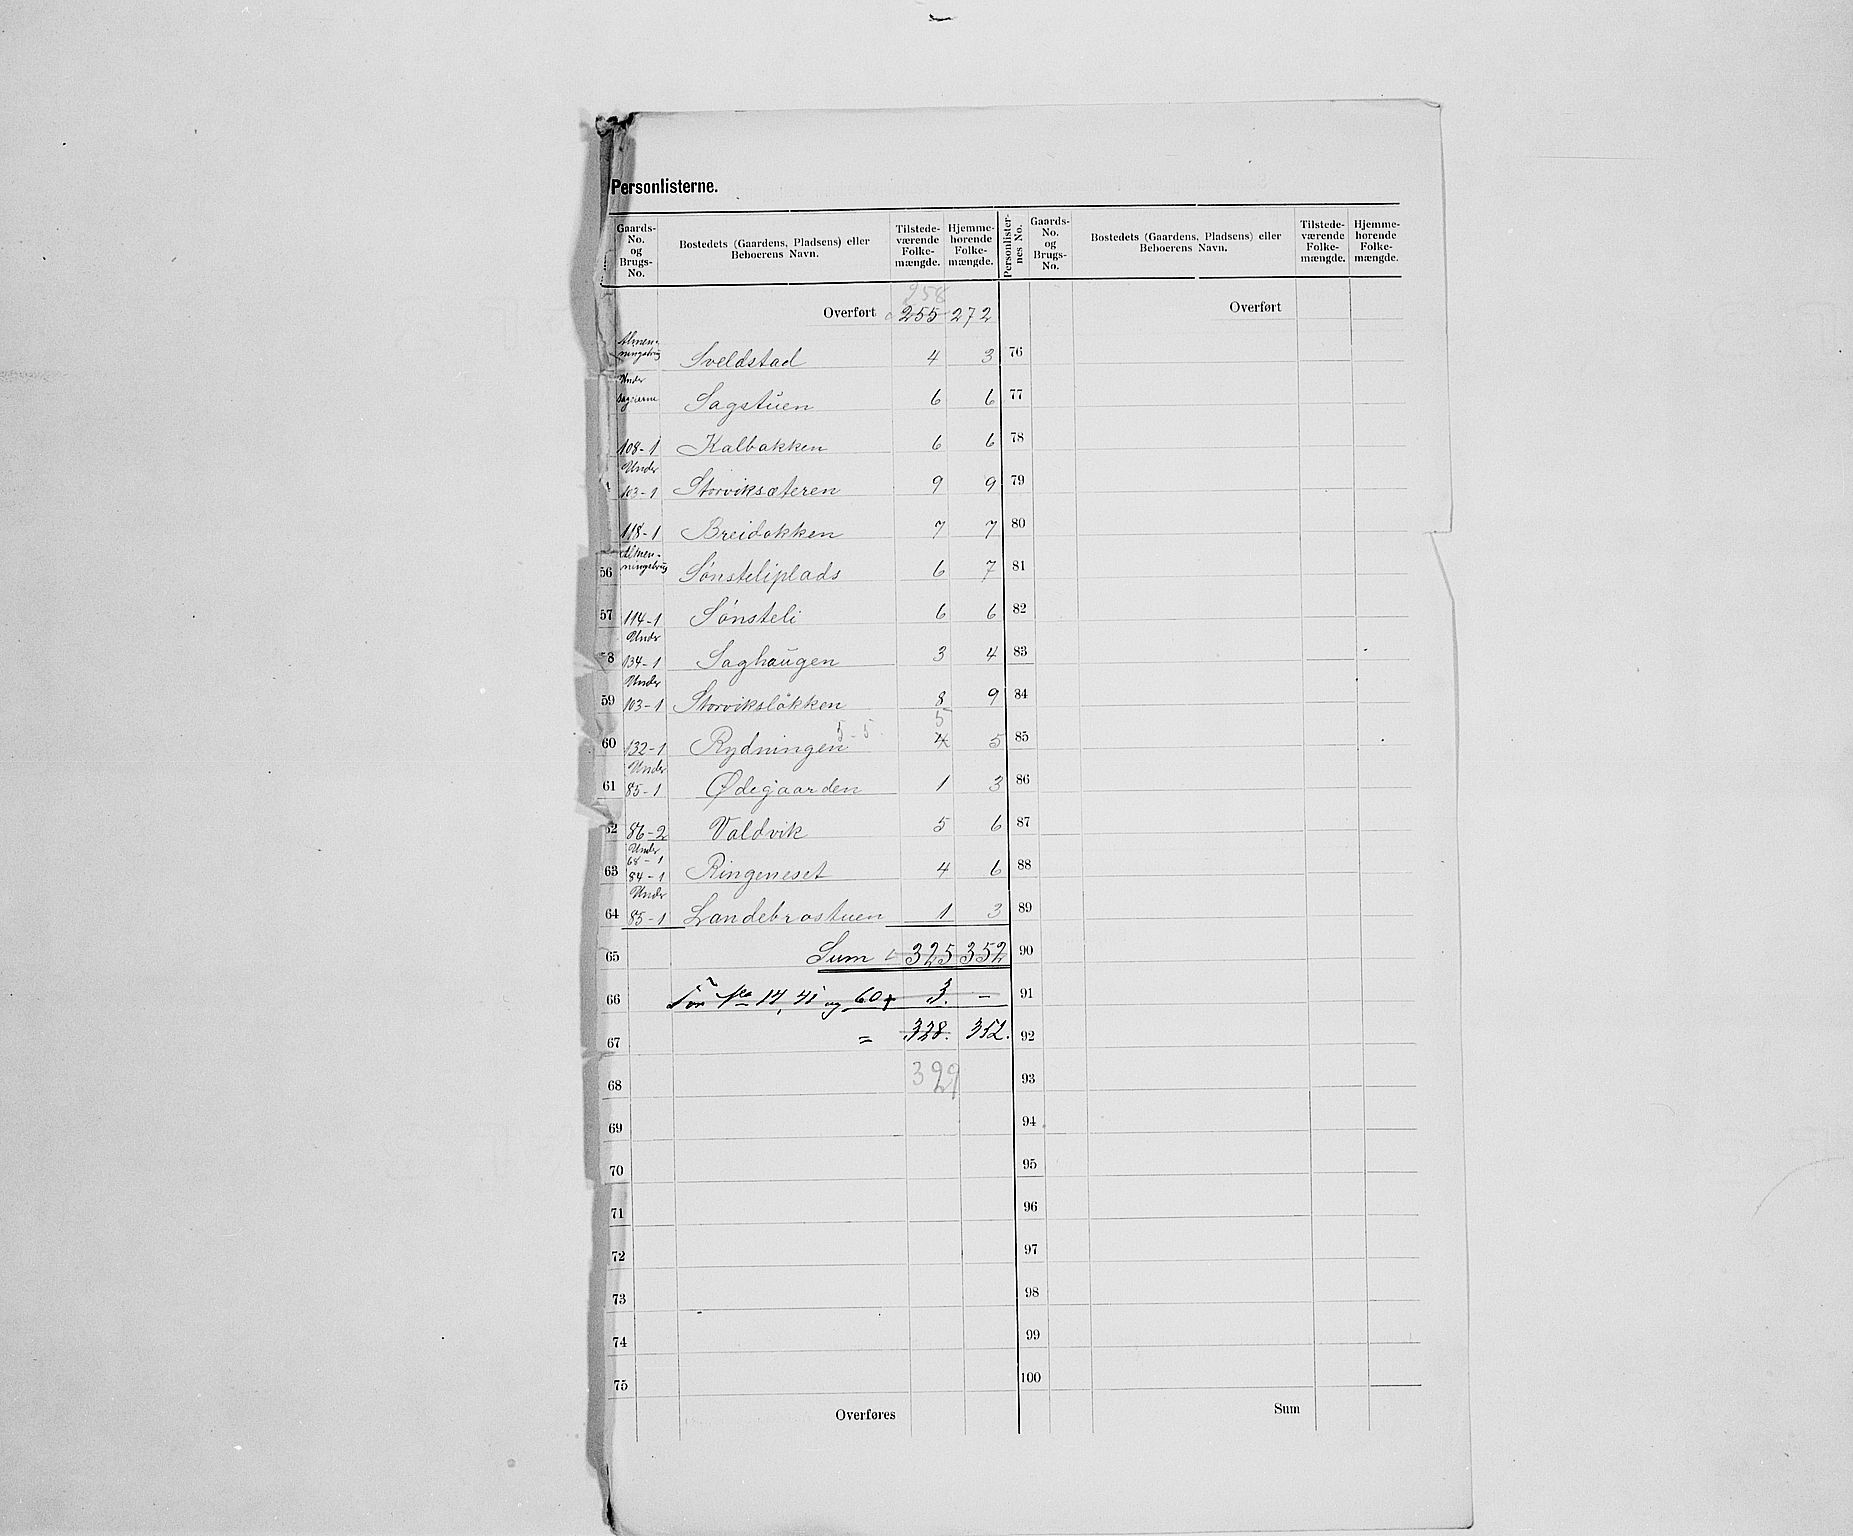 Personlisterne.
Gaards-No. og Brugs-No. Bostedets (Gaardens, Pladsens) eller Beboerens Navn. Tilstede-værende Folke-mængde. Hjemme-hørende Folke-mængde. Personlister-nes No. Gaards-No. og Brugs-No. Bostedets (Gaardens, Pladsens) eller Beboerens Navn. Tilstede-værende Folke-mængde. Hjemme-hørende Folke-mængde.
258
Overført 255 272 Overført
Almen-
ningsbrug Sveldstad 4 3 76
Under
Sageierne Sagstuen 6 6 77
108-1 Kalbakken 6 6 78
Under
103-1 Storviksæteren 9 9 79
118-1 Breidakken 7 7 80
Almen-
56 ningsbrug Sønsteliplads 6 7 81
57 114-1 Sønsteli 6 6 82
Under
58 134-1 Saghaugen 3 4 83
Under
59 103-1 Storviksløkken 8 9 84
5-5 5
60 132-1 Rydningen 4 5 85
Under
61 85-1 Ødegaarden 1 3 86
62 86-2 Valdvik 5 6 87
Under
68-1
63 84-1 Ringeneset 4 6 88
Under
64 85-1 Landebrostuen 1 3 89
65 Sum 325 352 90
66 For No 14, 41 og 60 + 3. - 91
67 = 328. 352. 92
68 329 93
69 94
70 95
71 96
72 97
73 98
74 99
75 100
Overføres Sum